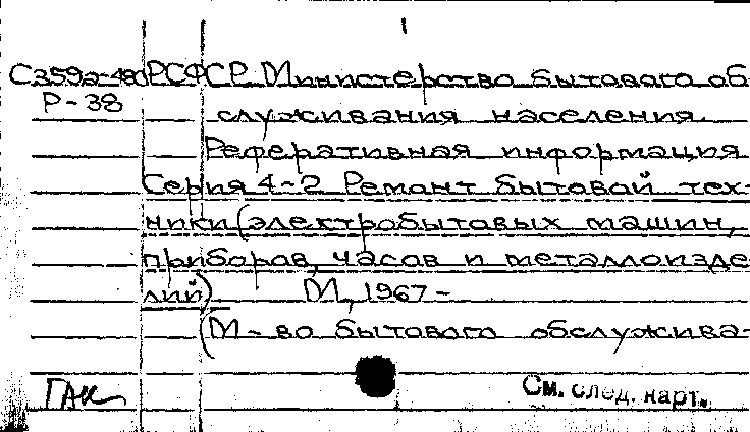 С359а-480 РСФСР. Министерство бытового об-
Р-38
служивания населения.
Реферативная информация
Серия 4-2 Ремонт бытовой тех-
ники (электробытовых машин,
приборов, часов и металлоизде-
лий) М., 1967 -
(М-во бытового обслужива-
ГАК
См. след. карт.